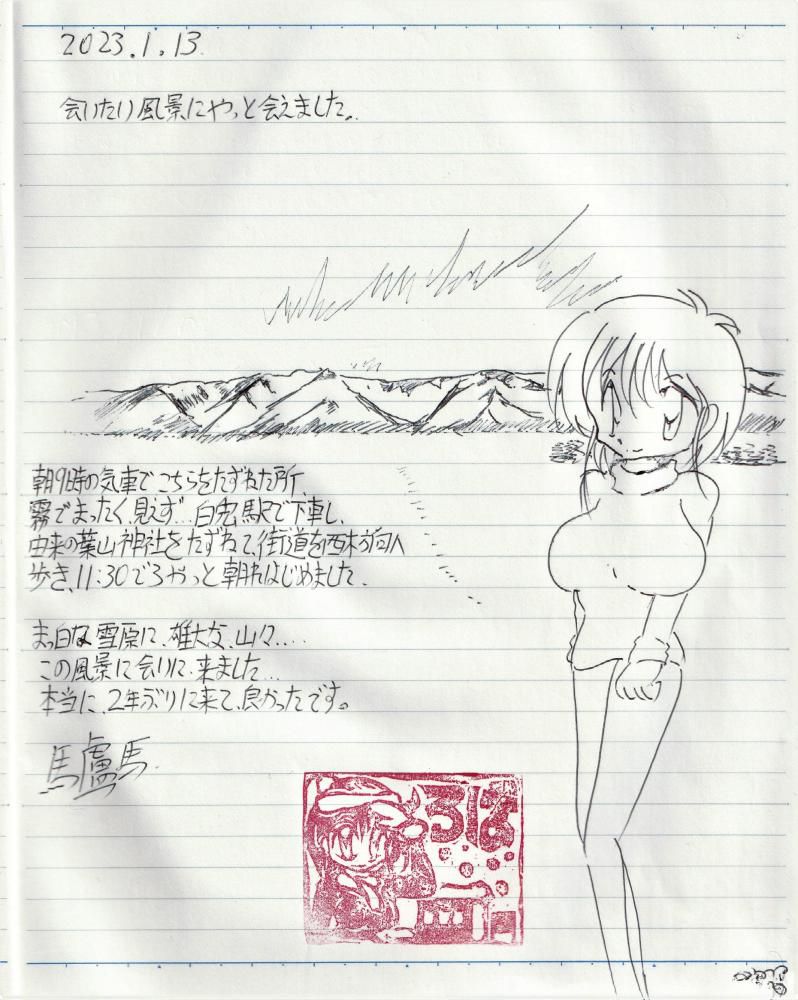 2023.1.13.
会いたい風景にやっと会えました。
朝9時の気車でこちらをたずねた所、
霧でまったく見えず...白兎駅で下車し、
由来の葉山神社をたずねて、街道を西方向へ
歩き、11:30ごろやっと朝れはじめました.
まっ白な雪原に、雄大な、山々....
この風景に会いに、来ました...
本当に、2年ぶりに来て、良かったです。
馬盧馬
ろば